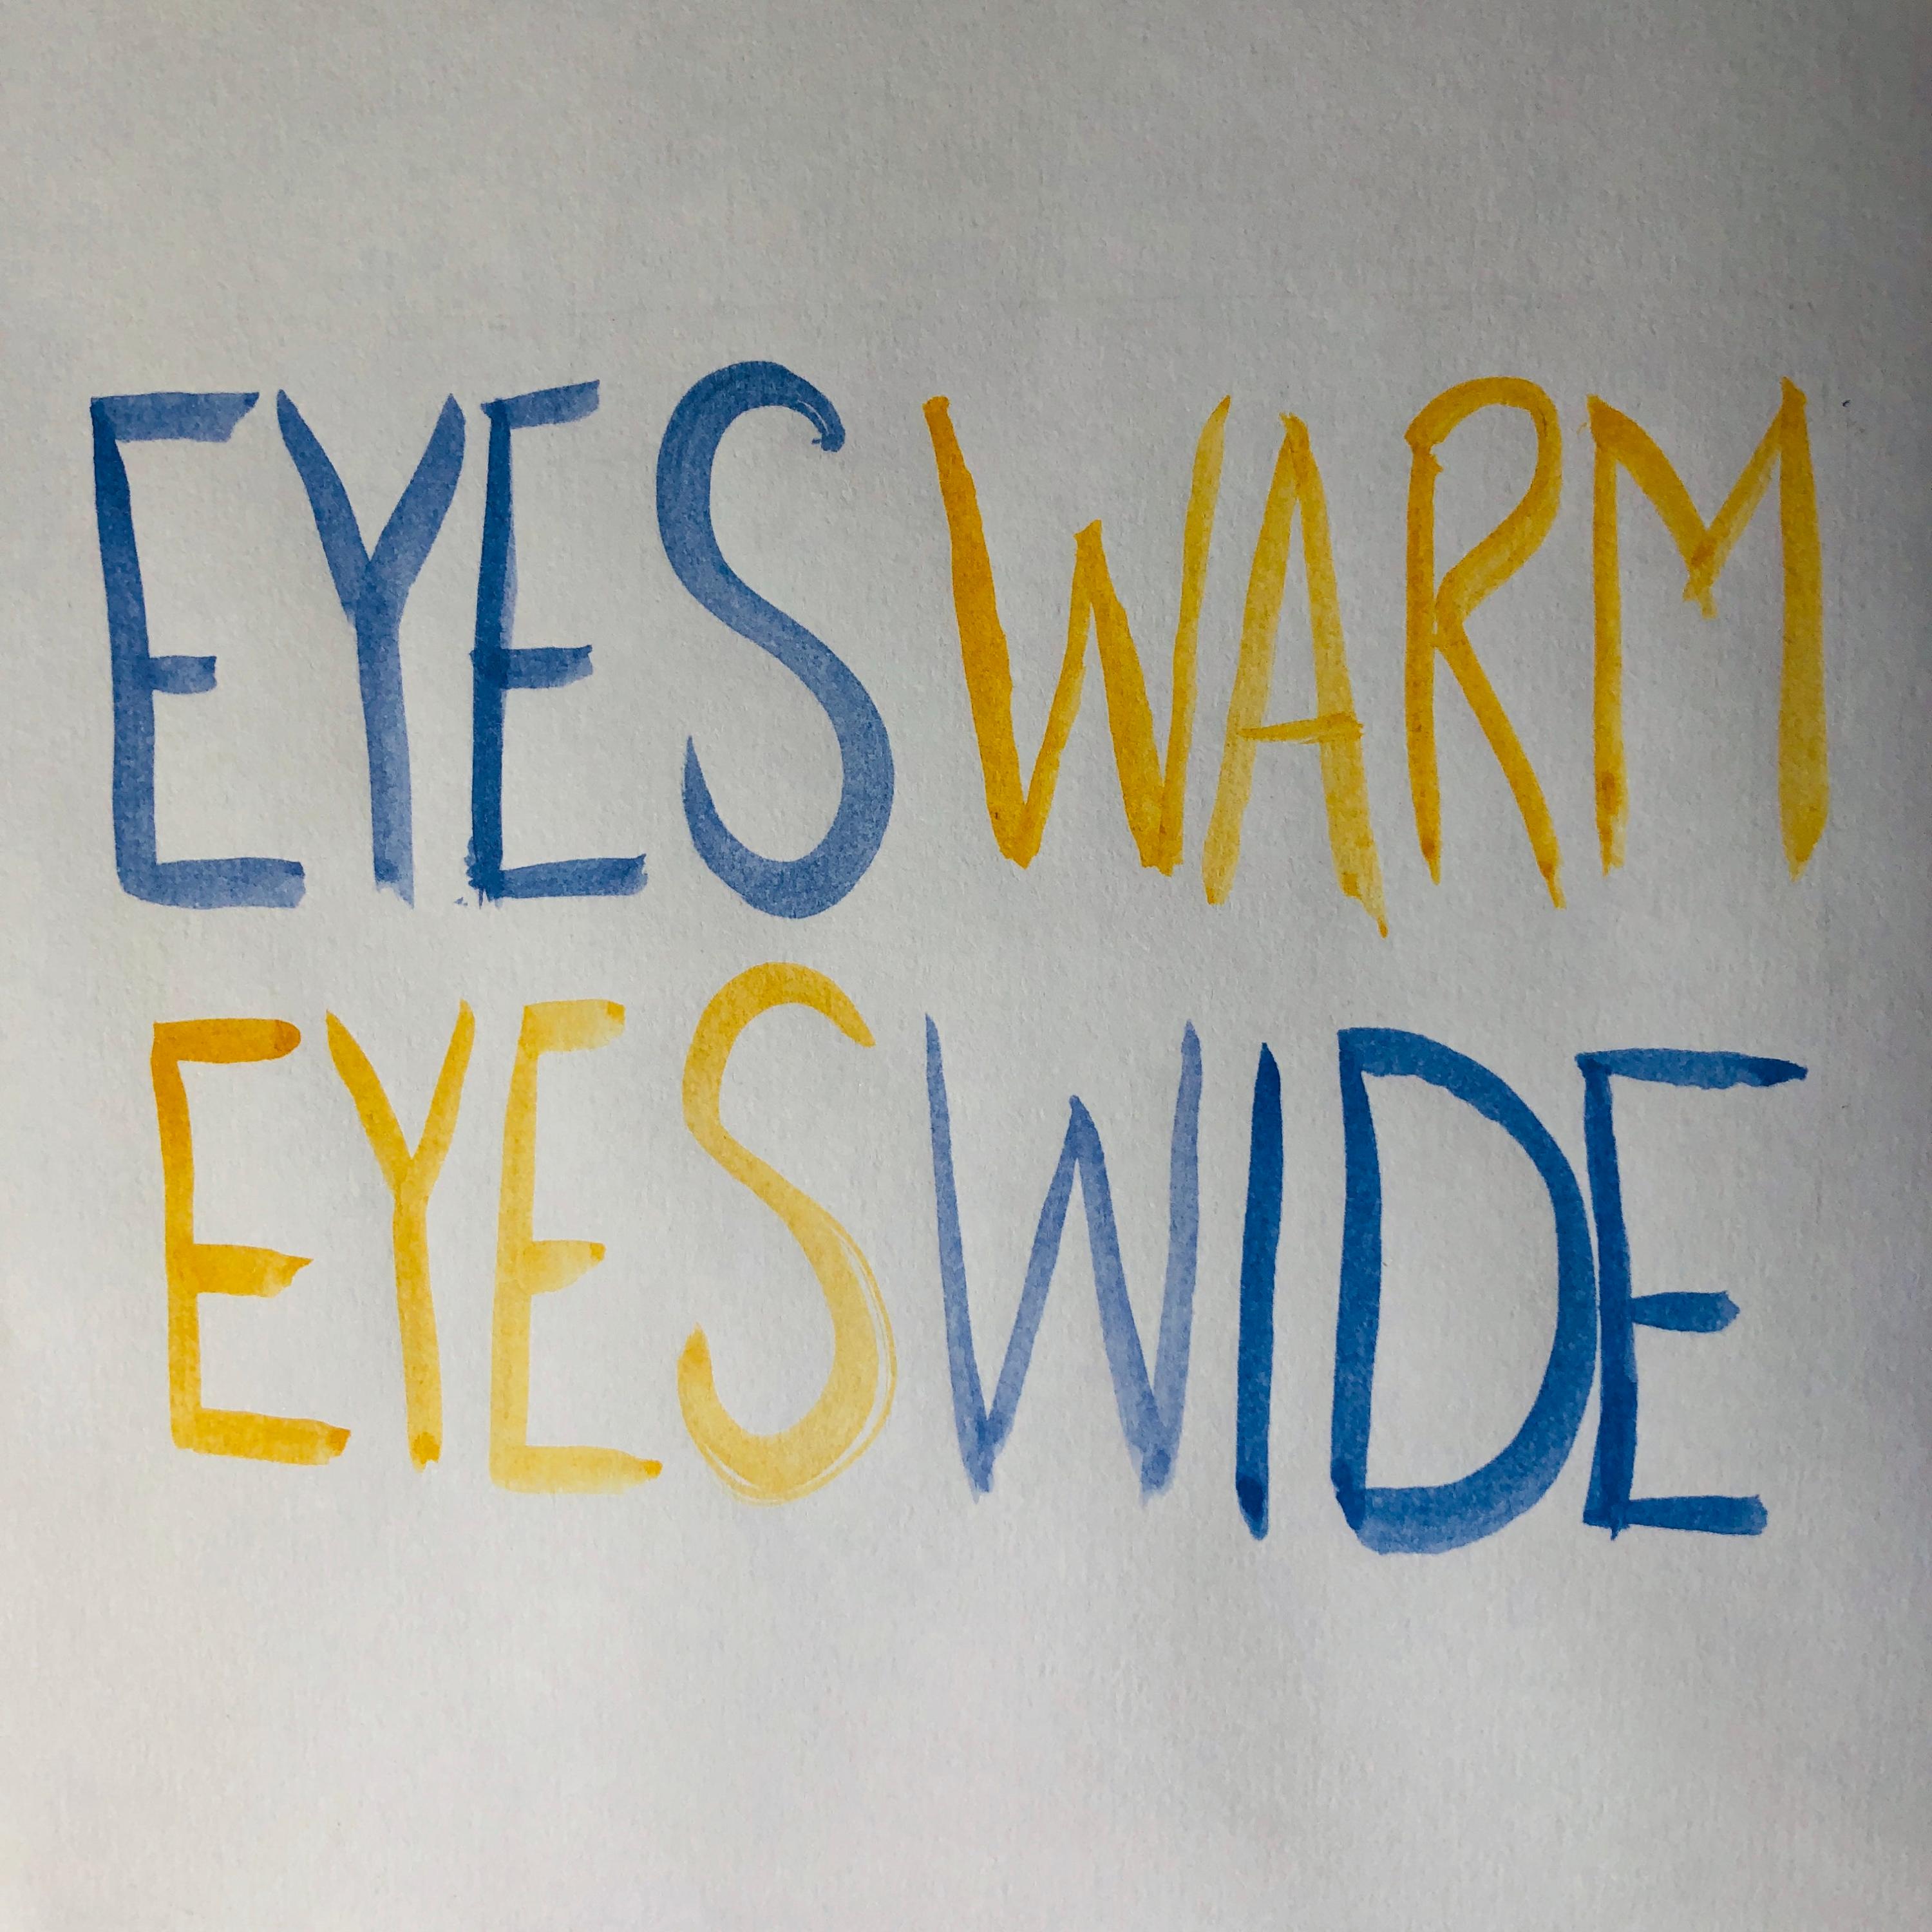 EYES WARM
EYES WIDE